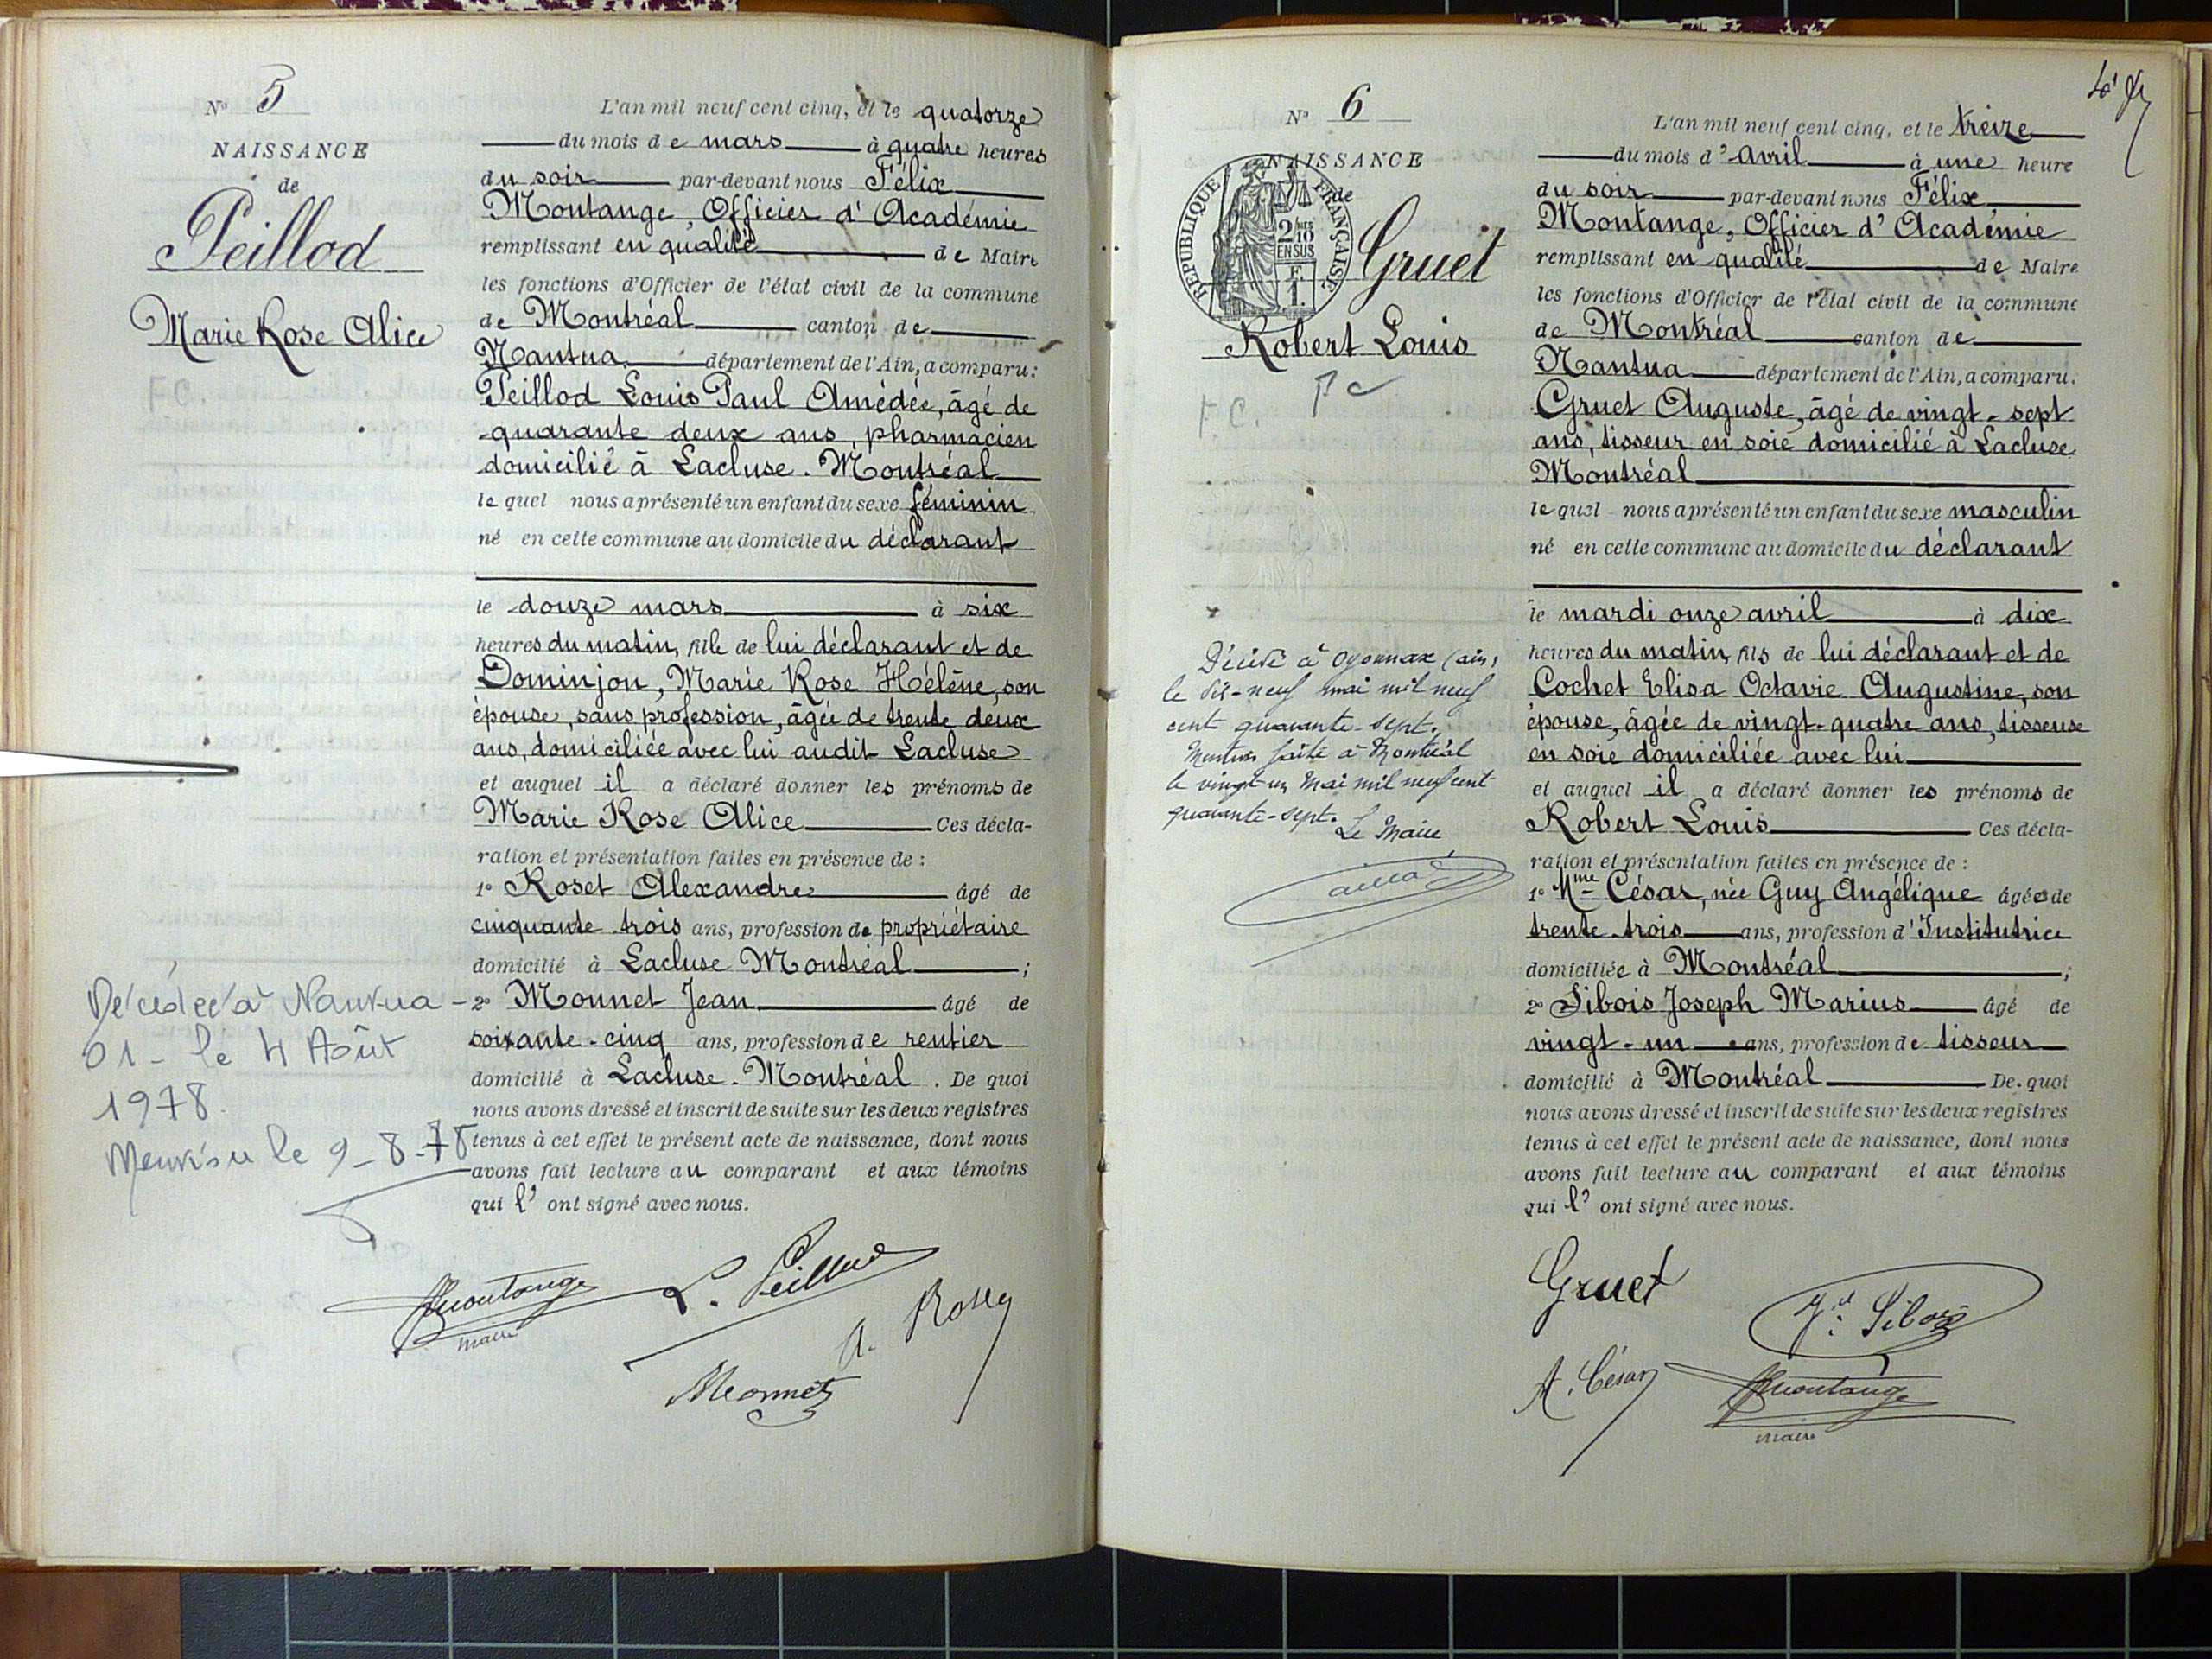 N° 5
NAISSANCE
de
Peillod
Marie Rose Alice
Décédée à Nantua -
01 - le 4 Août
1978
Mention le 9-8-78
L'an mil neuf cent cinq, et le quatorze
du mois de mars à quatre heures
du soir par-devant nous Félix
Montange, Officier d'Académie
remplissant en qualité de Maire
les fonctions d'Officier de l'état civil de la commune
de Montréal canton de
Nantua département de l'Ain, a comparu:
Peillod Louis Paul Amédée, âgé de
quarante deux ans, pharmacien
domicilié à Lacluse. Montréal
lequel nous a présenté un enfant du sexe féminin
né en cette commune au domicile du déclarant
le douze mars à six
heures du matin, fille de lui déclarant et de
Dominjon, Marie Rose Hélène, son
épouse, sans profession, âgée de trente deux
ans, domiciliée avec lui audit Lacluse
et auquel il a déclaré donner les prénoms de
Marie Rose Alice Ces décla-
ration et présentation faites en présence de :
1° Roset Alexandre âgé de
cinquante trois ans, profession de propriétaire
domicilié à Lacluse Montréal ;
2° Monnet Jean âgé de
soixante-cinq ans, profession de rentier
domicilié à Lacluse-Montréal. De quoi
nous avons dressé et inscrit de suite sur les deux registres
tenus à cet effet le présent acte de naissance, dont nous
avons fait lecture au comparant et aux témoins
qui l' ont signé avec nous.
Montange L. Peillod
maire
A. Roset
Monnet
N° 6
NAISSANCE
de
REPUBLIQUE FRANÇAISE
2/10 EN SUS
Gruet
Robert Louis
Décédé à Oyonnax (Ain,
le dix-neuf mai mil neuf
cent quarante-sept.
Mention faite à Montréal
le vingt-un Mai mil neuf cent
quarante-sept.
Le Maire,
L'an mil neuf cent cinq, et le treize
du mois d'avril à une heure
du soir par-devant nous Félix
Montange, Officier d'Académie
remplissant en qualité de Maire
les fonctions d'Officier de l'état civil de la commune
de Montréal canton de
Nantua département de l'Ain, a comparu.
Gruet Auguste, âgé de vingt-sept
ans, tisseur en soie domicilié à Lacluse
Montréal
lequel nous a présenté un enfant du sexe masculin
né en cette commune au domicile du déclarant
le mardi onze avril à dix
heures du matin, fils de lui déclarant et de
Cochet Elisa Octavie Augustine, son
épouse, âgée de vingt-quatre ans, tisseuse
en soie domiciliée avec lui
et auquel il a déclaré donner les prénoms de
Robert Louis Ces décla-
ration et présentation faites en présence de :
1° Mme César, née Guy Angélique âgée de
trente-trois ans, profession d'Institutrice
domiciliée à Montréal ;
2° Sibois Joseph Marius âgé de
vingt-un ans, profession de tisseur
domicilié à Montréal De quoi
nous avons dressé et inscrit de suite sur les deux registres
tenus à cet effet le présent acte de naissance, dont nous
avons fait lecture au comparant et aux témoins
qui l' ont signé avec nous.
Gruet
Sibois
A. César Montange
maire